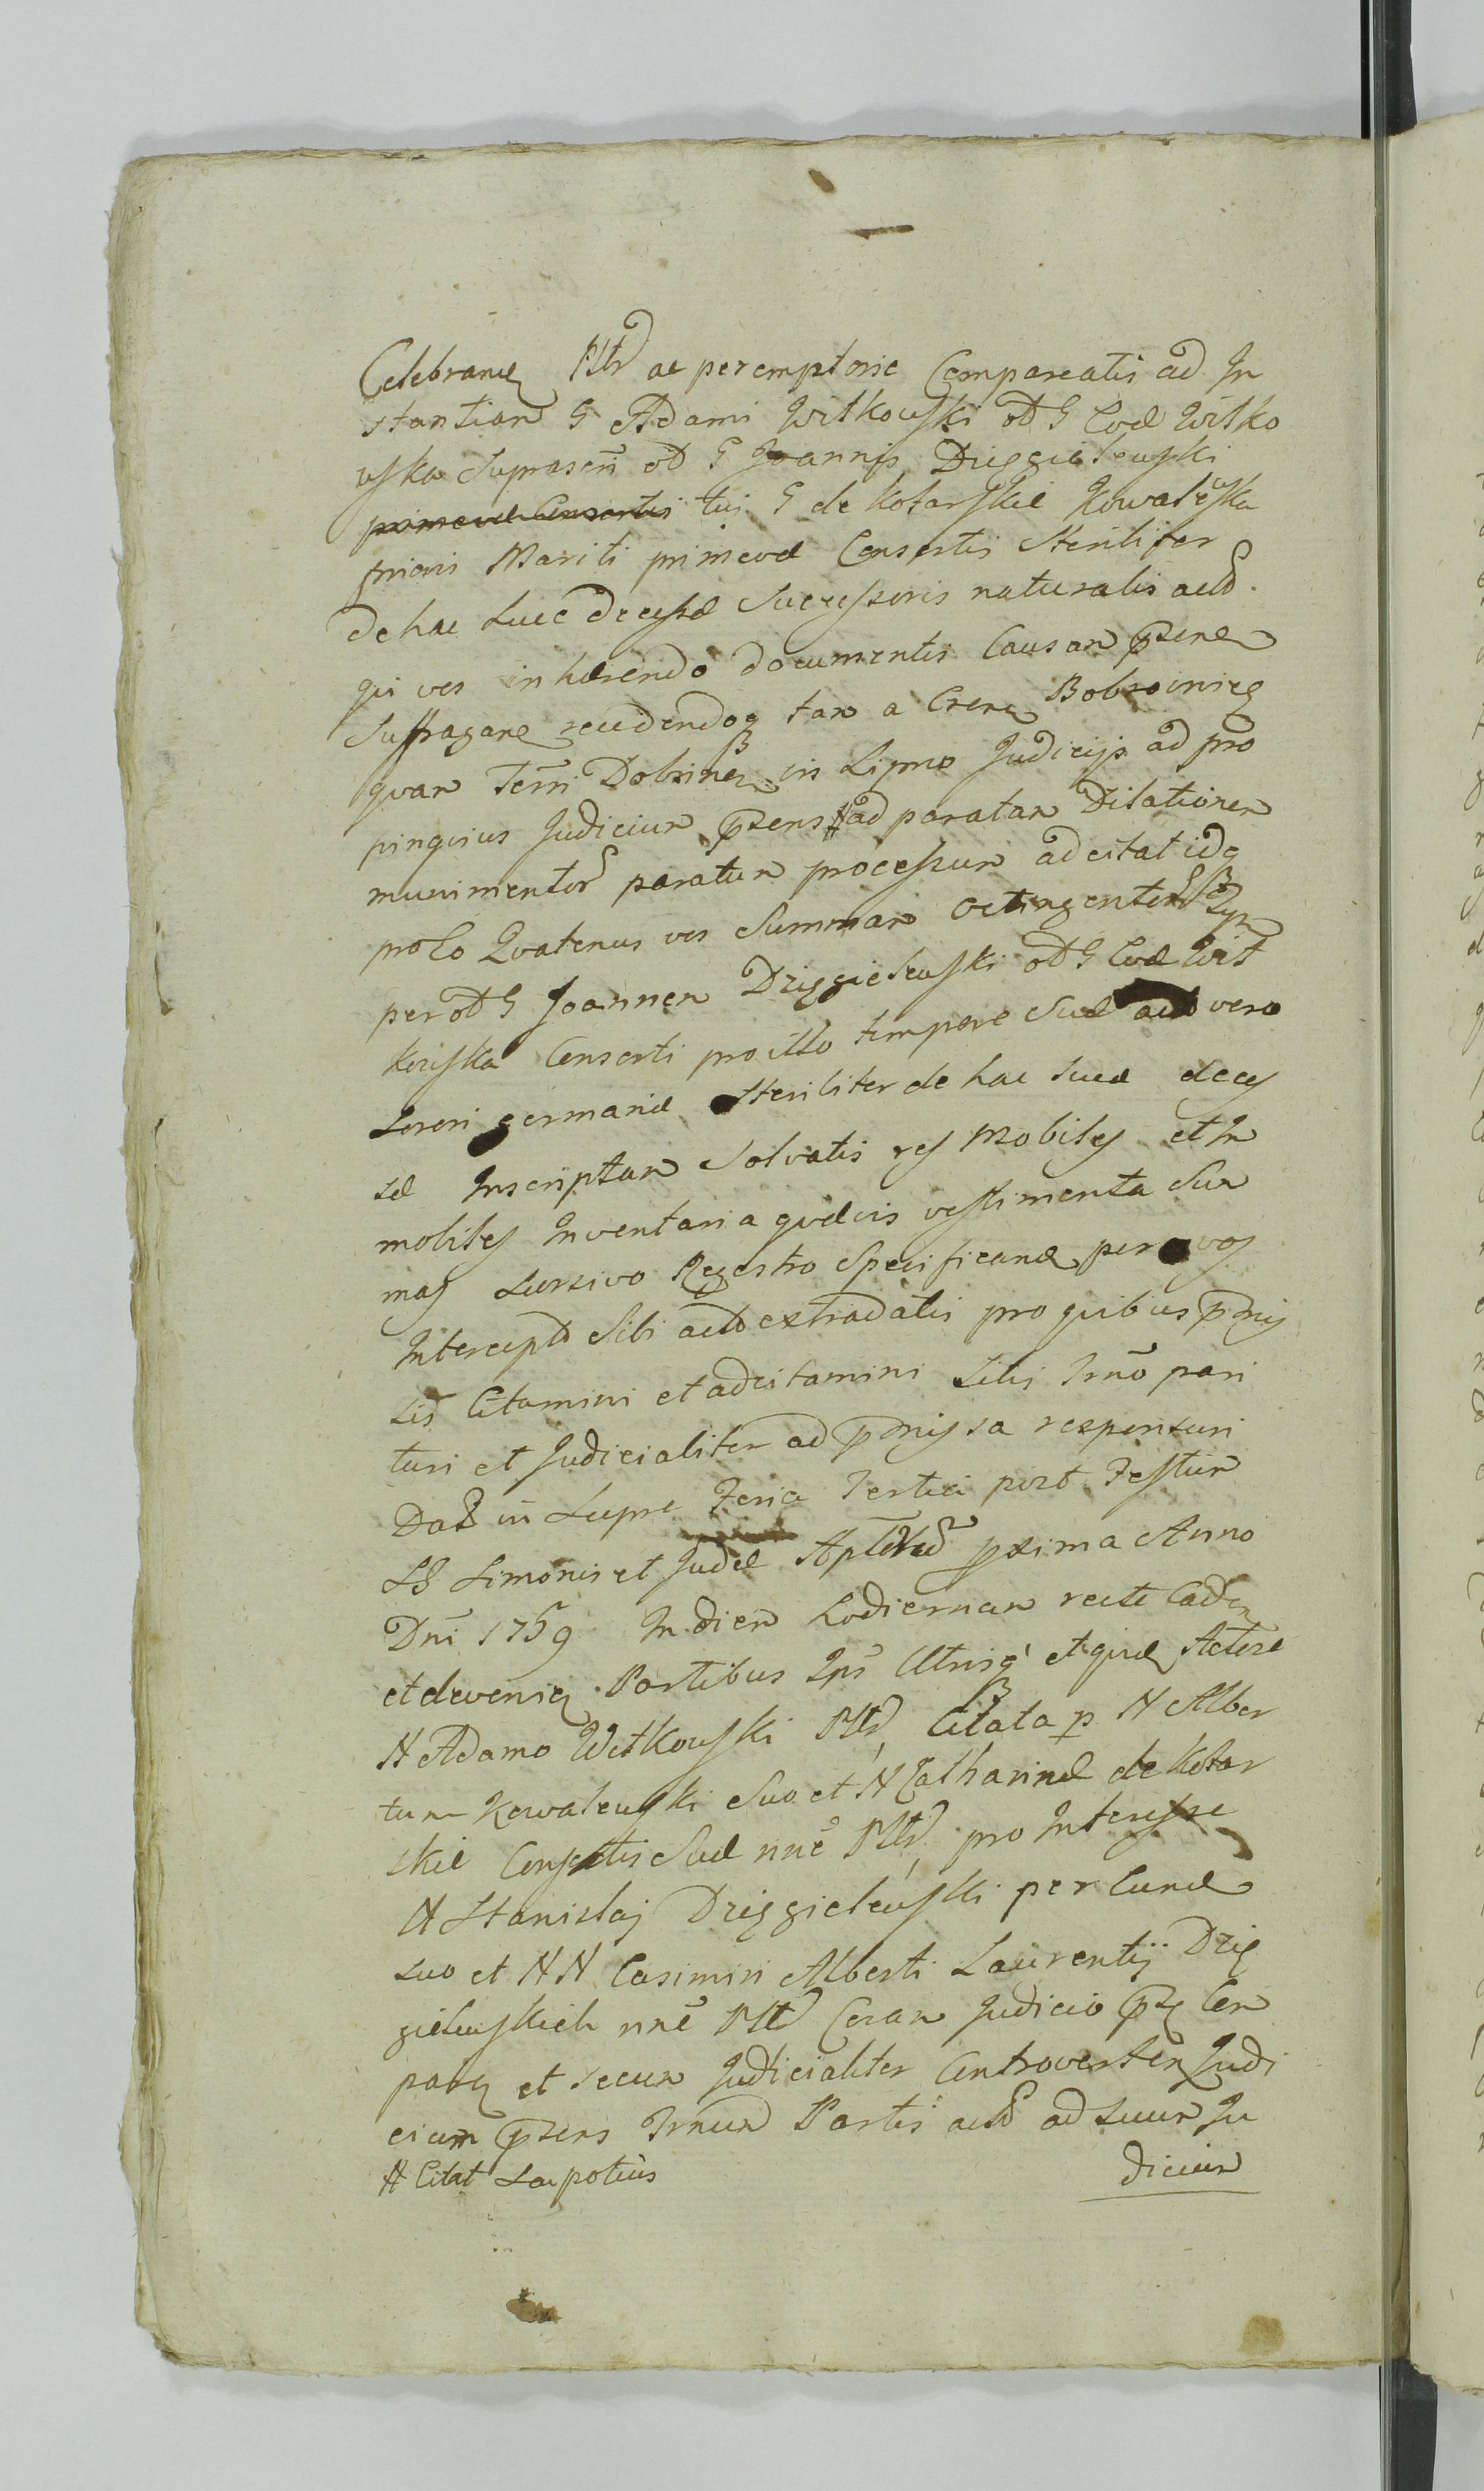 Celebran Pltr ac peremptorie Compareatis ad In
stantiam G Adami Witkowski od G Evæ Witko
wska Suprascri od G Joannis Dzięgielewski
primevæ Consortis tui G de Kotarskie Kowalewska
prioris Mariti primevæ Consortis Steriliter
de hac Luce decessæ Successoris naturalis actd.
qui vos inhærendo documentis Causam pzen
Suffragan recidendoq tam a Cren Bobrownic
quam Terri Dobrinen in Lipno Judicijs ad pro
pinquius Judicium pzens # ad paratam Dilationem
munimentor paratum processum adcitat idq
pro Eo Quatenus vos Summam octingentor
per od G Joannem Dzięgielewski od G Evæ Wit
kowska Consorti pro illo tempore Suæ act vero
Sorori germanæ Steriliter de hac Lucæ deces
sæ Inscriptam Solvatis res Mobiles et Im
mobiles Inventaria quævis vestimenta Sum
mas Lorsivo Regestro Specificand per vos
Intercepta Sibi actd extradatis pro quibus pmis
sis Citamini et adcitamini Litis Irno pari
turi et Judicialiter ad pmissa responsuri
Dat in Supre Feria Tertia post Festum
SS Simonis et Judæ Aptorum pxima Anno
Dni 1759 In diem hodiernam recte Caden
et devenien Partibus Ips Utrisq et quid Actore
N Adamo Witkowski Pltr Citata p N Alber
tum Kowalewski Suo et N Catharinæ de Kotar
skie Consortis Suæ nne Pltr pro Interesse
N Stanislaj Dzięgielewski per Cund
suo et NN Casimiri Alberti Laurentij Dzię
gielewskich nne Pltr Coram Judicio pz Com
paren et secum Judicialiter Controverten Judi
cium pzens Irnum Partis actd ad suum Ju
# Citat Seu potius
dicium